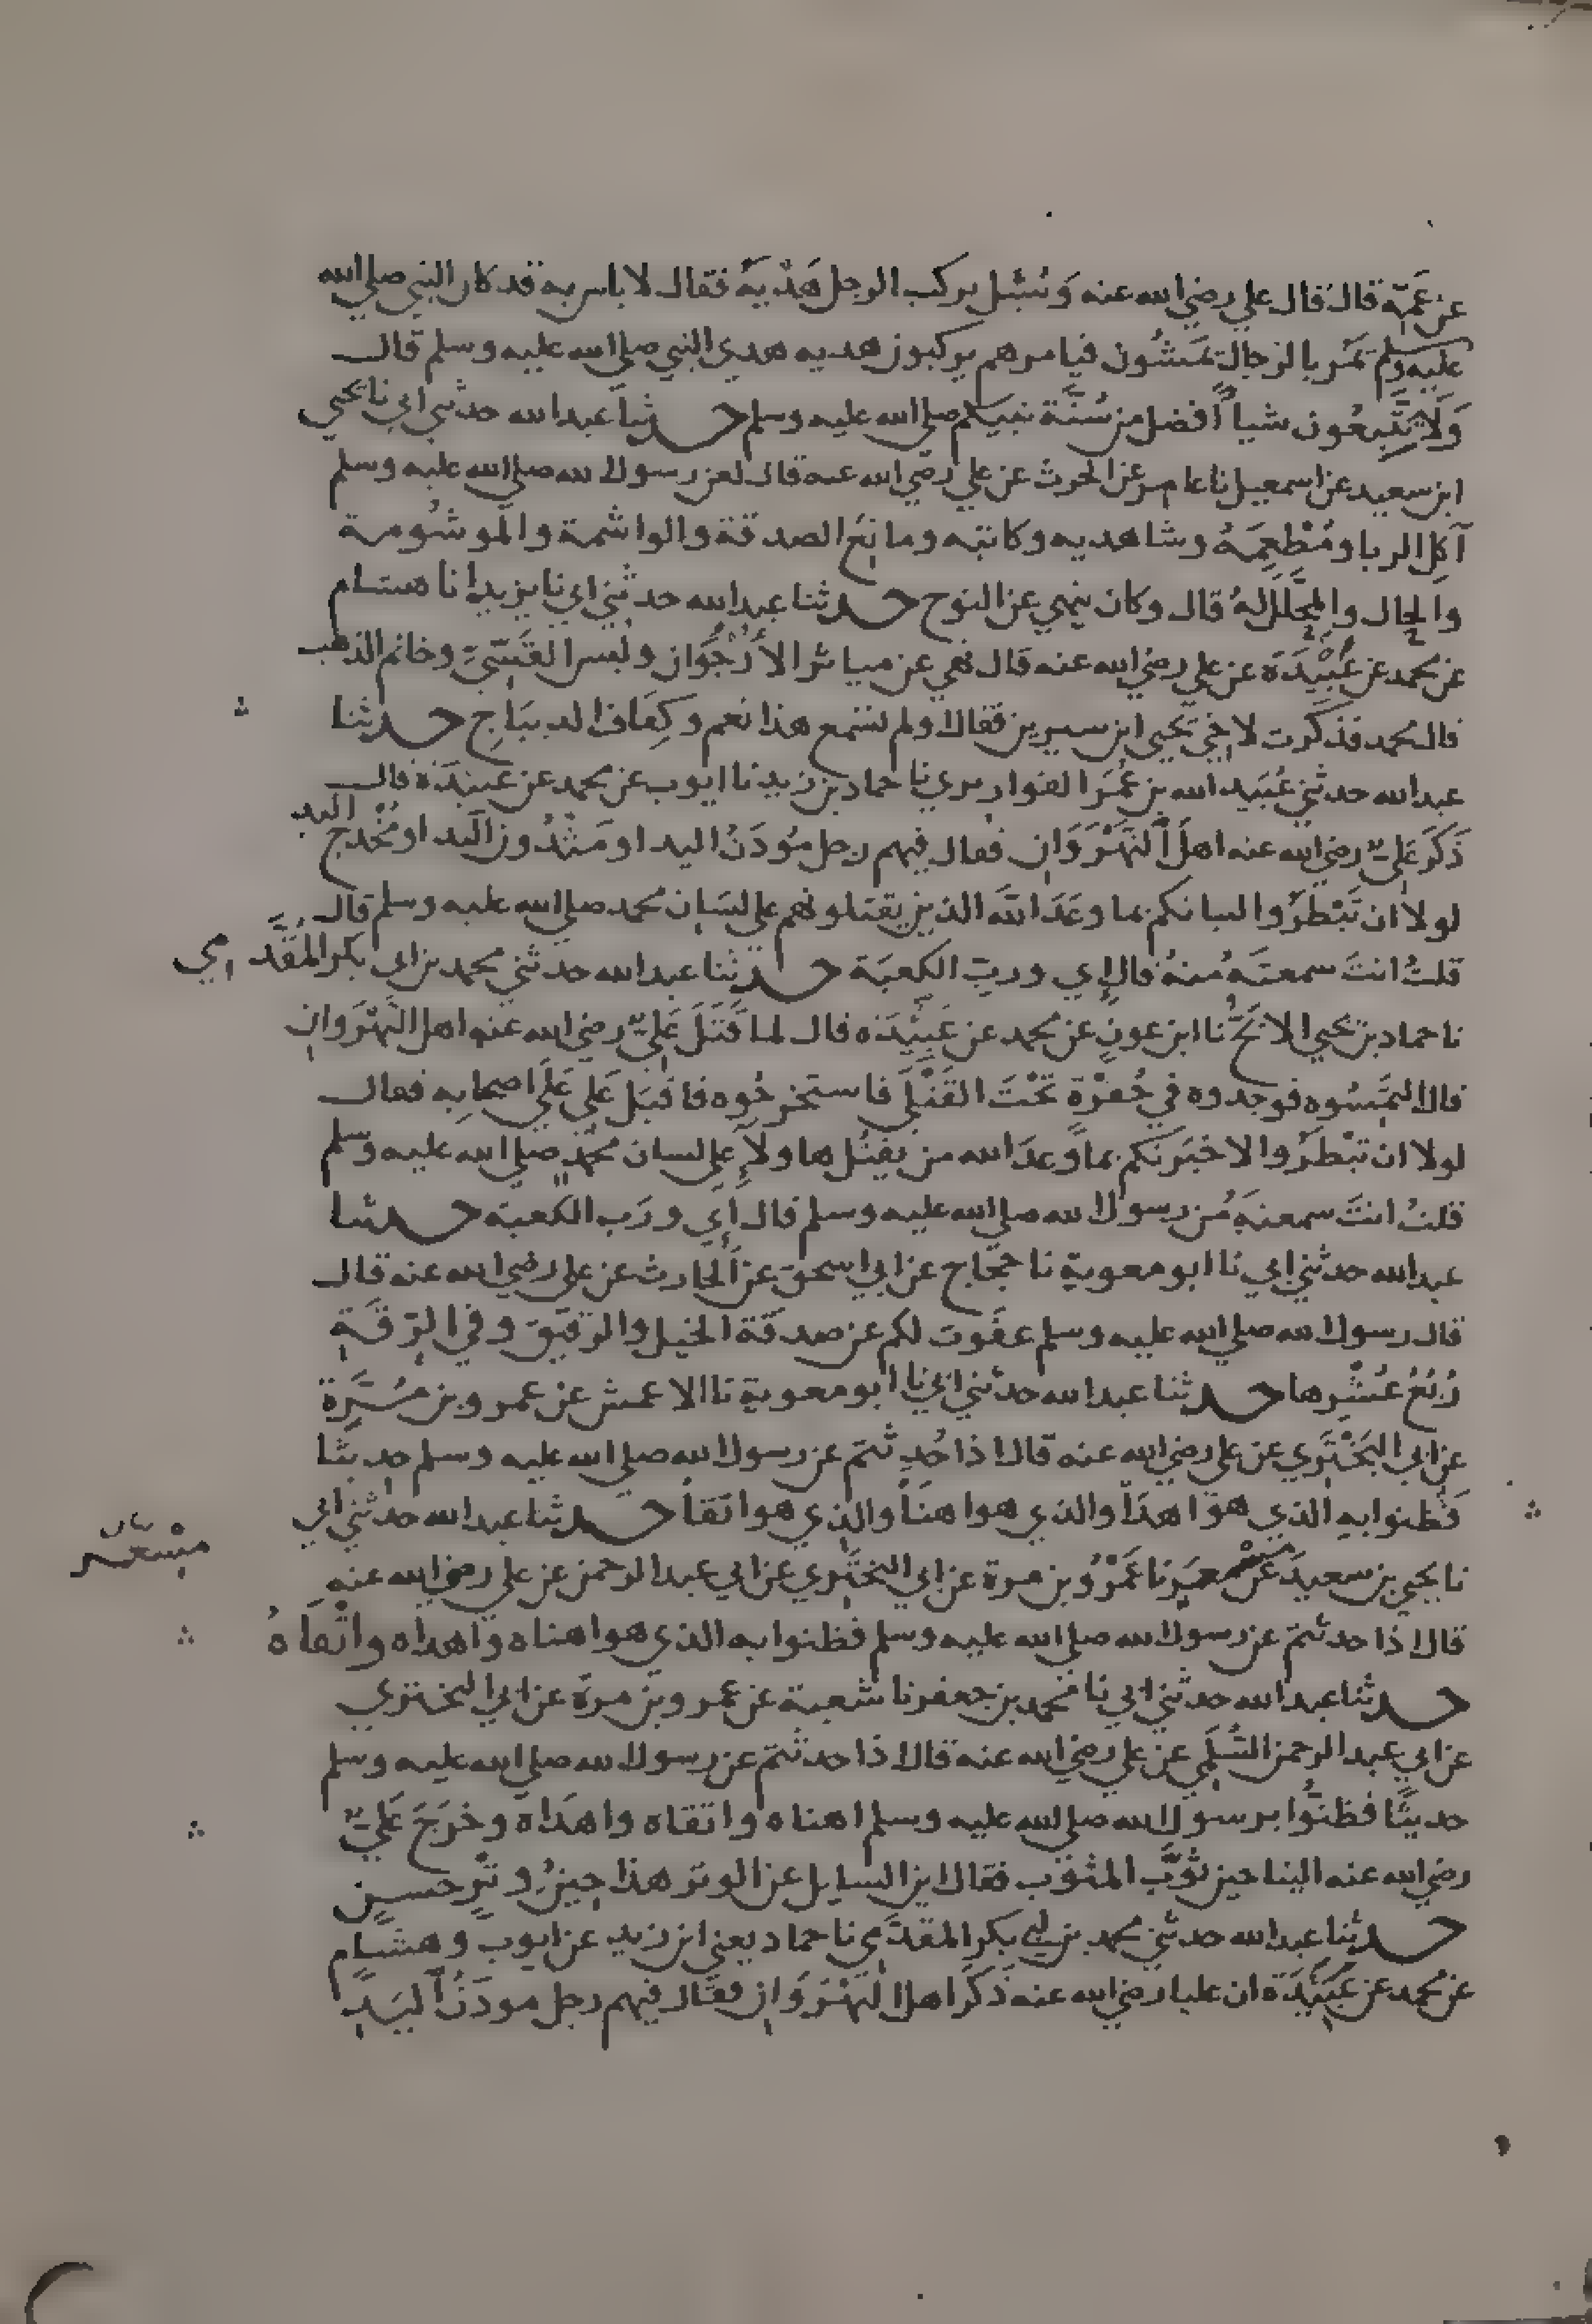 عن عَمِّه قال قال علي رضي الله عنه وَسُئِل يركب الرجل هَدْيَهُ فقال لا باس به قد كان النبي صلى الله
عليه وسلم يَمُر بالرجال يَمشُون فيامرهم يركبون هديه هدي النبي صلى الله عليه وسلم قال
وَلَا تَتَّبِعُون شياً أفضل من سُنَّة نبيكم صلى الله عليه وسلم حدثنا عبد الله حدثني ابي نا يحيى
ابن سعيد عن اسمعيل نا عامر عن الحرث عن علي رضي الله عنه قال لعن رسول الله صلى الله عليه وسلم
آكل الربا ومُطْعِمَهُ وشاهديه وكاتبه ومانعَ الصدقة والواشمة والموشُومة
والحال والمحَلَّلَ لهُ قال وكان ينهى عن النوح حدثنا عبد الله حدثني ابي نا يزيد انا هشام
عن محمد عن عَبِيْدَة عن علي رضي الله عنه قال نهى عن مياثر الأُرْجُوَان ولبس القَسِّيِّ وخاتم الذهب
قال محمد فذكرت لاخي يحيى ابن سيرين فقال او لم تسمع هذا نعم وكِفَاف الديبَاجِ حدثنا
عبد الله حدثني عُبَيد الله بن عُمَرَ القواريري نا حماد بن زيد نا ايوب عن محمد عن عَبِيْدَة قال
ذَكَرَ عَلِيٌّ رضي الله عنه اهلَ النَهْرَوَانِ فقال فيهم رجل مُودَنُ اليد او مَثْدُون اليَد او مُخْدج اليد
لولا ان تَبْطَرُوا لنباتكم بما وعَدَ اللهُ الذين يقتلونهم على لسَان محمد صلى الله عليه وسلم قال
قلتُ انتَ سمعتَهُ منهُ قال إي وربِّ الكعبَة حدثنا عبد الله حدثني محمد بن ابي بكر المُقَدَّمي
نا حماد بن يحيى الابَحُّ نا ابن عونٍ عن محمد عن عَبِيْدَه قال لما قَتَلَ عَلِيٌّ رضي الله عنه اهل النَهْرَوانِ
قال التَمِسُوه فوجدوه في حُفْرَةٍ تَحْتَ القَتْلَى فاستخرجُوه فاقبَل عَلي عَلَى اصحابِه فقال
لولا ان تبْطَرُوا لاخبَرتكم بما وعَدَ الله من يقتُل هاولاءِ على لسان محمَّدٍ صلى الله عليه وسلم
قلتُ انتَ سمعتَهُ من رسول الله صلى الله عليه وسلم قال إِي ورَب الكعبَة حدثنا
عبد الله حدثني ابي نا ابو معوية نا حجّاج عن ابي اسحق عن الحارث عن علي رضي الله عنه قال
قال رسول الله صلى الله عليه وسلم عفَوت لكم عن صدقَة الخيل والرقيق وفي الرِّقَةِ
رُبْعُ عُشْرِها حدثنا عبد الله حدثني ابي نا ابو معوية نا الاعمش عن عمرو بن مُرَّة
عن ابي البَخْتَري عن علي رضي الله عنه قال اذا حُدِثتم عن رسول الله صلى الله عليه وسلم حديثا
فَظنوا به الذي هو اهدَا والذي هو اهنَاً والذي هو اتقاً حدثنا عبد الله حدثني ابي
نا يحيى بن سعيد عن مسعر نا عَمْرُو بن مرة عن ابي البَختَري عن ابي عبد الرحمن عن علي رضي الله عنه
مِسْعر
قال اذا حدثتم عن رسول الله صلى الله عليه وسلم فظنوا به الذي هو اهناه واهداه واتْقَاهُ
حدثنا عبد الله حدثني ابي نا محمد بن جعفر نا شعبة عن عمرو بن مرة عن ابي البختري
عن ابي عبد الرحمن السُّلَمِي عن علي رضي الله عنه قال اذا حدثتم عن رسول الله صلى الله عليه وسلم
حديثًا فظنُّوا برسول الله صلى الله عليه وسلم اهناه واتقاه واهدَاه وخرَجَ عَلِيٌّ
رضي الله عنه الينا حين ثَوَّب المثوِّب فقال اين السايل عن الوتر هذا حِينُ وِتْرٍ حسَن
حدثنا عبد الله حدثني محمد بن ابي بكر المقدَّمِي نا حماد يعني ابن زيد عن ايوب وهشَام
عن محمد عن عَبِيْدَة ان عليا رضي الله عنه ذكَرَ اهل النَهْرَوَانِ فقال فيهم رجل مودَنُ اليَدِ